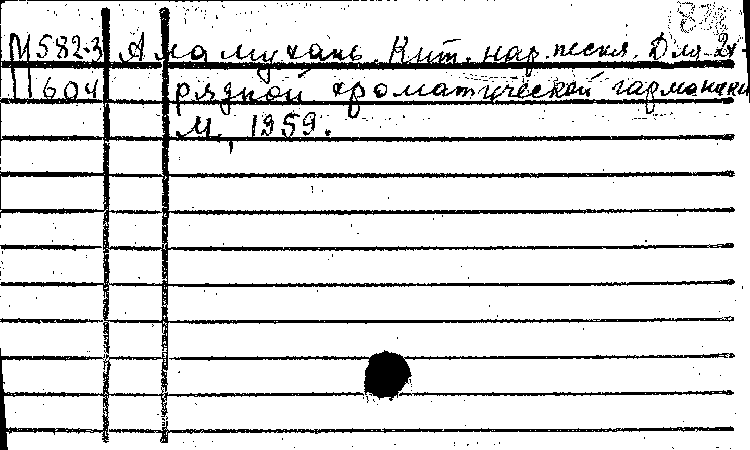 М582.3 Аламухань. Кит. нар. песня. Для 2х
П604 рядной хроматической гармоники
М., 1959.